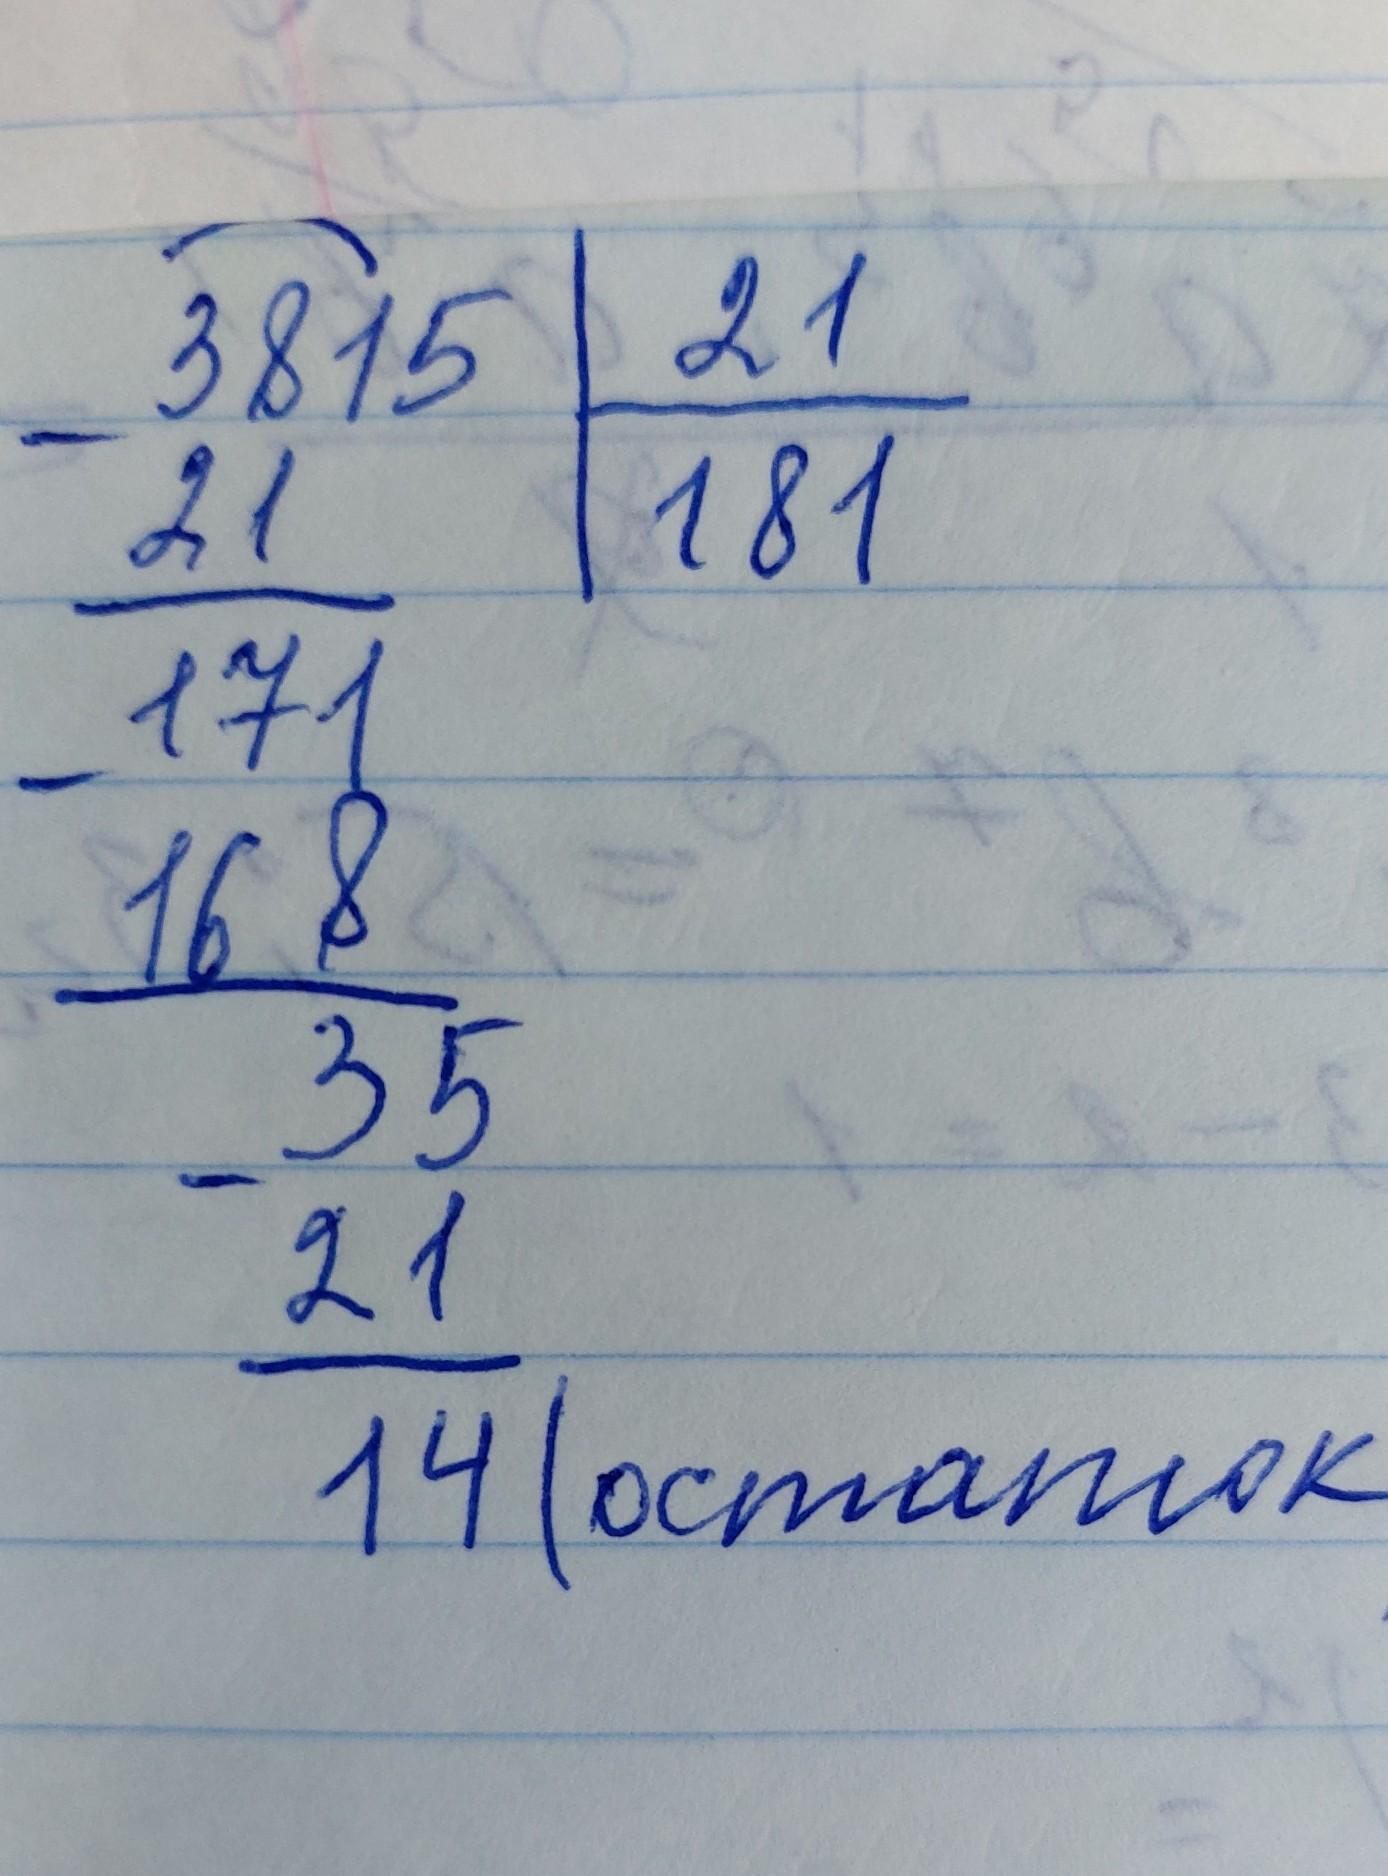 3815 | 21
- 21 | 181
171
- 168
35
- 21
14 (остаток